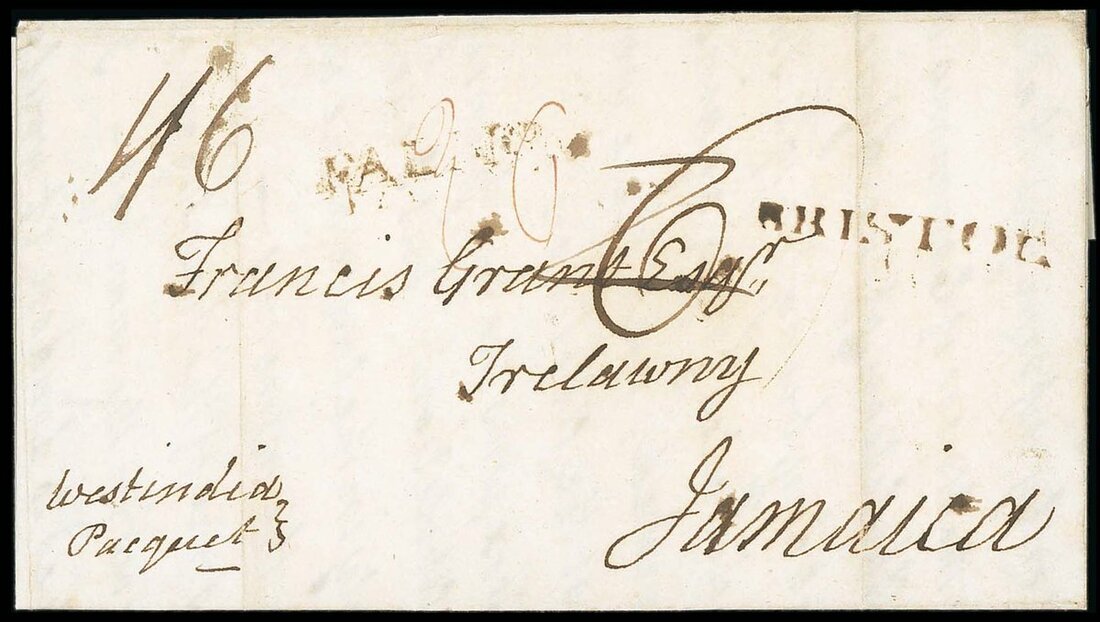 46
BRISTOL
Francis Grant Esqr.
Trelawny
Jamaica
Westindia
Pacquet